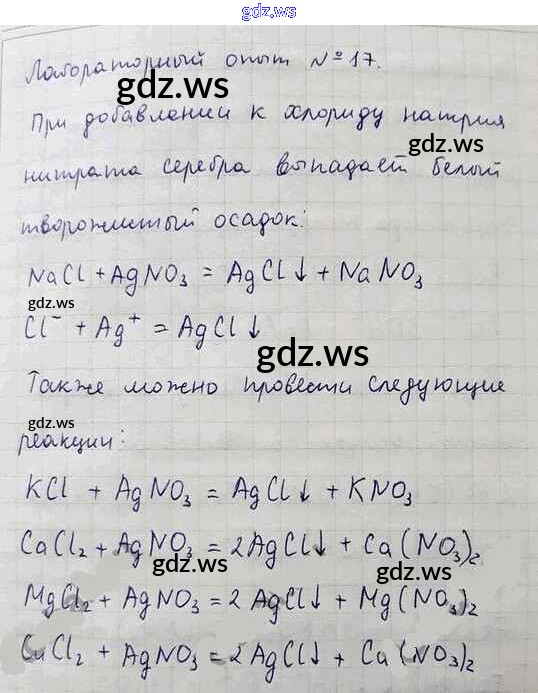 gdz.ws
Лабораторный опыт №17.
gdz.ws
При добавлении к хлориду натрия
gdz.ws
нитрата серебра выпадает белый
творожистый осадок:
NaCl + AgNO₃ = AgCl↓ + NaNO₃
gdz.ws
Cl⁻ + Ag⁺ = AgCl↓
gdz.ws
Также можно провести следующие
gdz.ws
реакции:
KCl + AgNO₃ = AgCl↓ + KNO₃
CaCl₂ + AgNO₃ = 2AgCl↓ + Ca(NO₃)₂
gdz.ws gdz.ws
MgCl₂ + AgNO₃ = 2AgCl↓ + Mg(NO₃)₂
CuCl₂ + AgNO₃ = 2AgCl↓ + Ca(NO₃)₂
gdz.ws